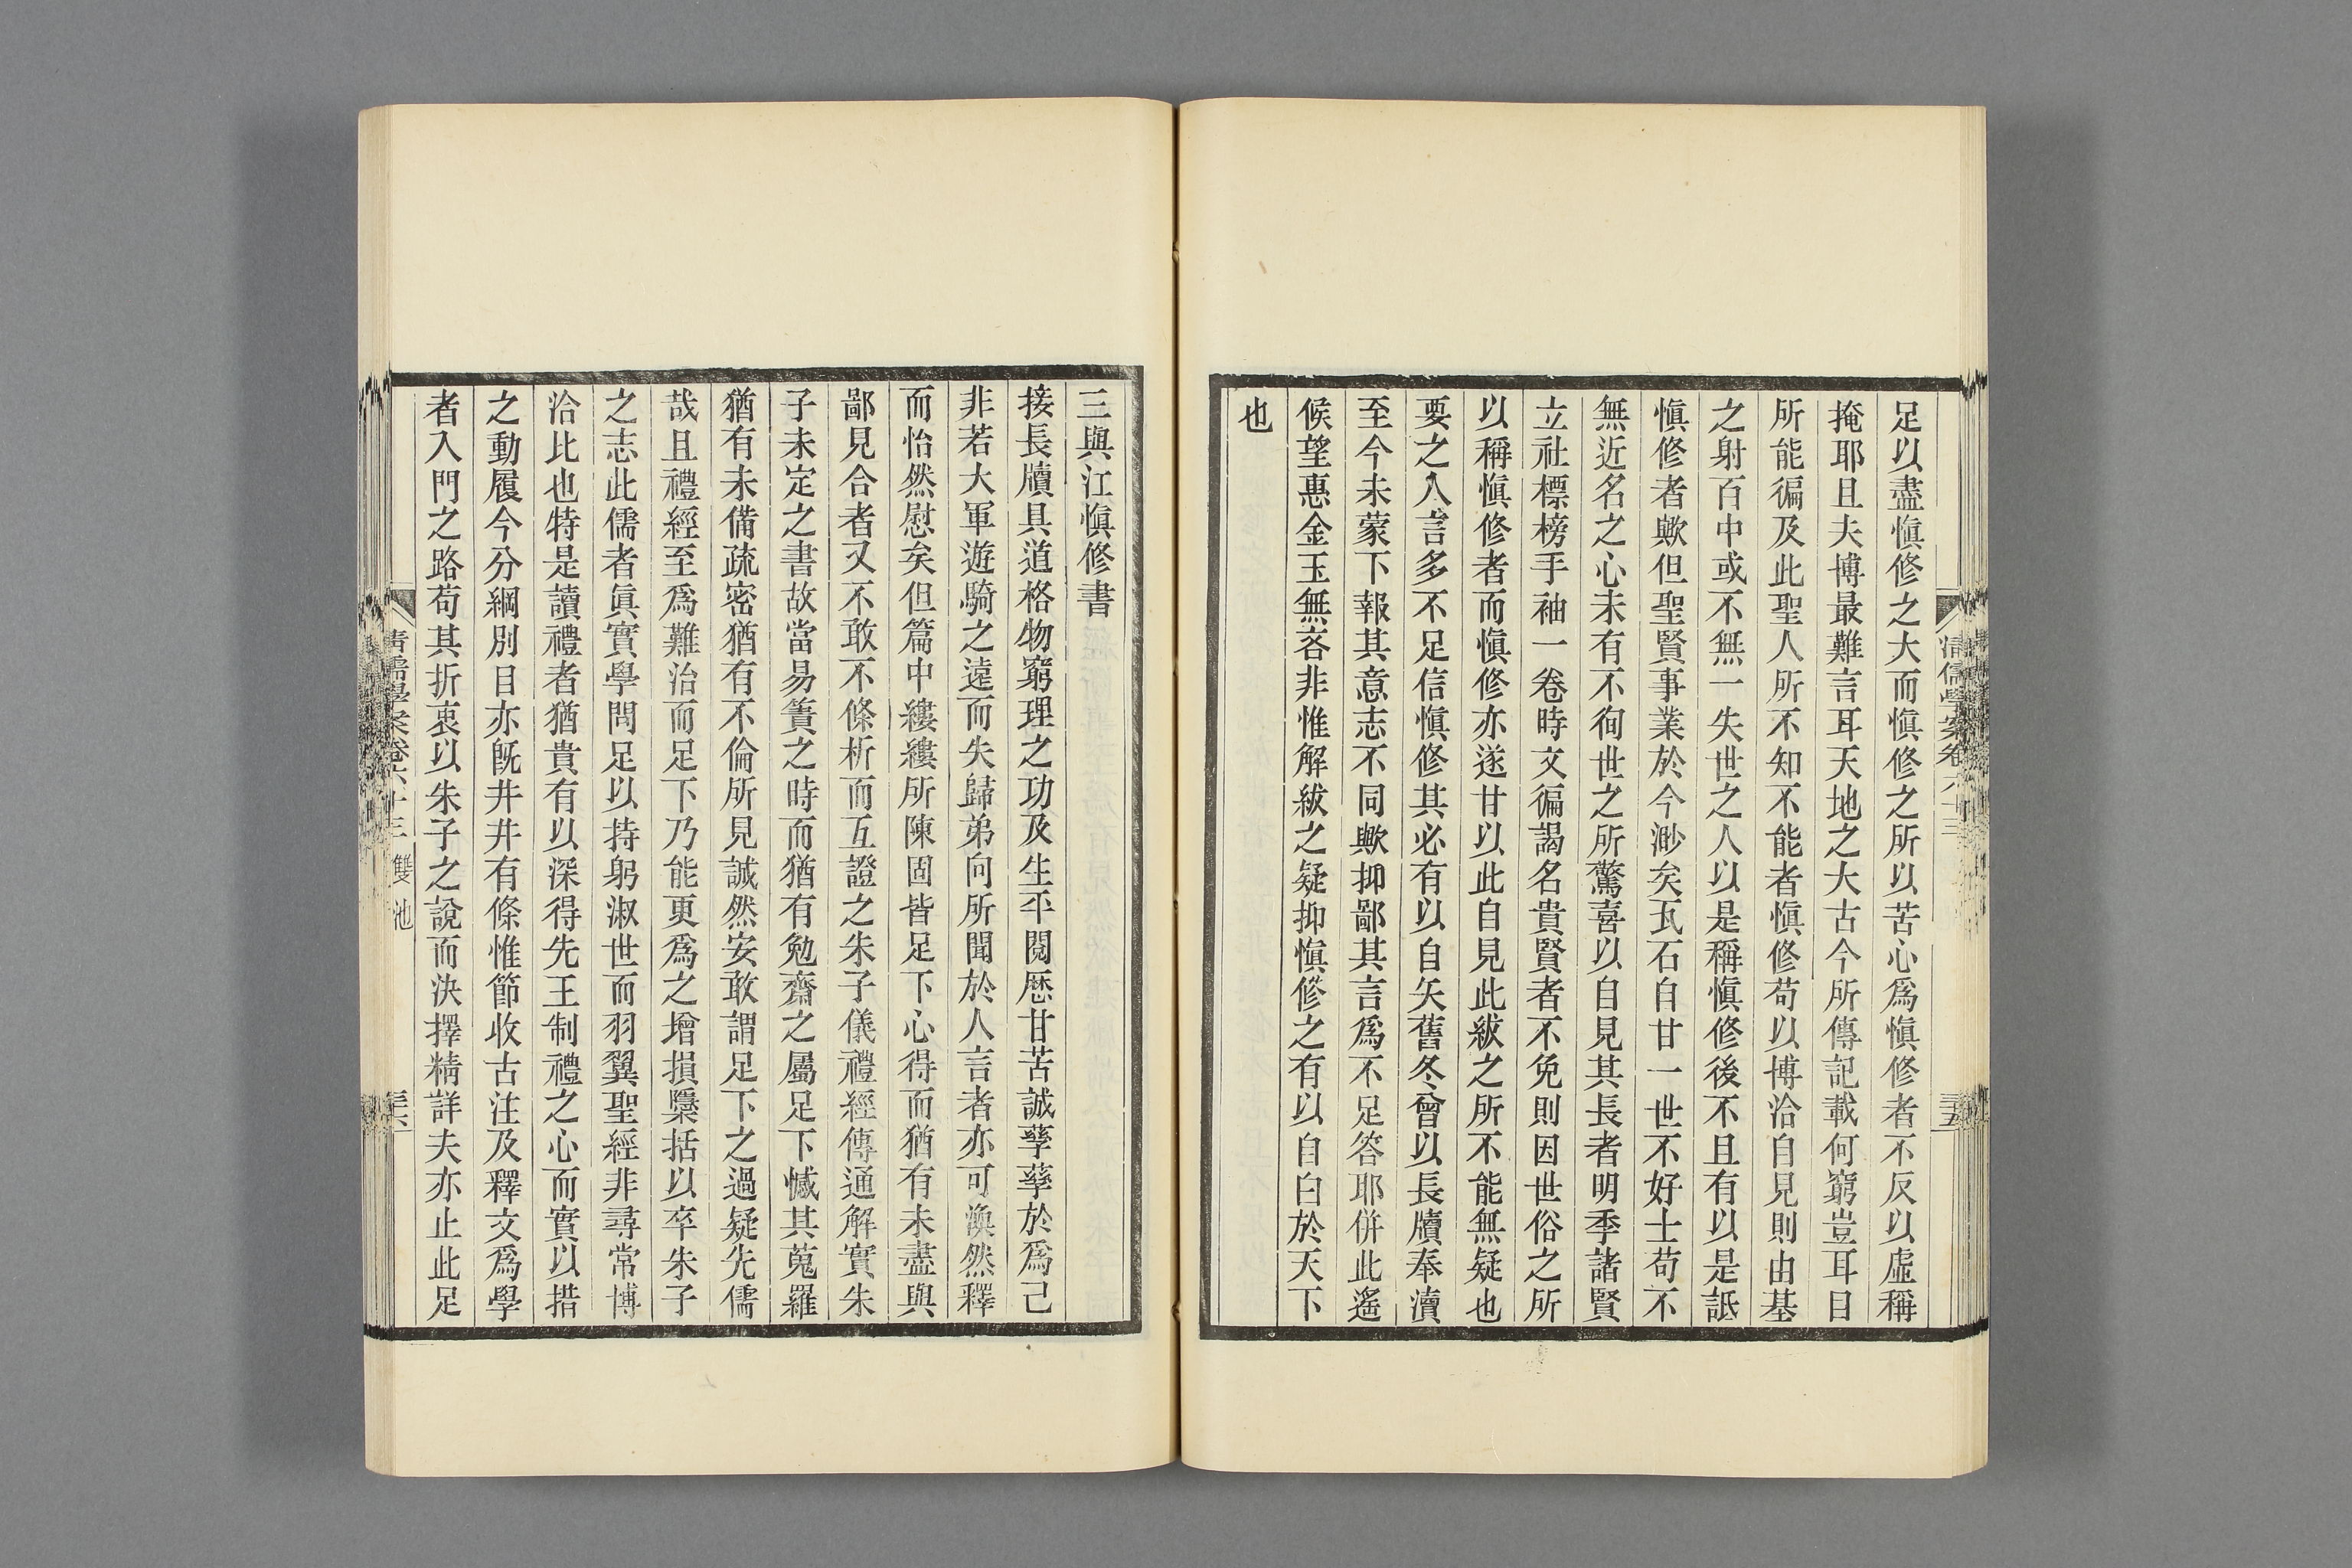 足以盡愼修之大而愼修之所以苦心爲愼修者不反以虛稱
掩耶且夫博最難言耳天地之大古今所傳記載何窮豈耳目
所能徧及此聖人所不知不能者愼修苟以博洽自見則由基
之射百中或不無一失世之人以是稱愼修後不且有以是詆
愼修者歟但聖賢事業於今渺矣瓦石自甘一世不好士苟不
無近名之心未有不徇世之所驚喜以自見其長者明季諸賢
立社標榜手袖一卷時文徧謁名貴賢者不免則因世俗之所
以稱愼修者而愼修亦遂甘以此自見此紱之所不能無疑也
要之人言多不足信愼修其必有以自矢舊冬曾以長牘奉瀆
至今未蒙下報其意志不同歟抑鄙其言爲不足答耶併此遙
候望惠金玉無吝非惟解紱之疑抑愼修之有以自白於天下
也
淸儒學案卷六十三
三五
三與江愼修書
接長牘具道格物窮理之功及生平閱歷甘苦誠孳孳於爲己
非若大軍遊騎之遠而失歸弟向所聞於人言者亦可渙然釋
而怡然慰矣但篇中縷縷所陳固皆足下心得而猶有未盡與
鄙見合者又不敢不條析而互證之朱子儀禮經傳通解實朱
子未定之書故當易簀之時而猶有勉齋之屬足下憾其蒐羅
猶有未備疏密猶有不倫所見誠然安敢謂足下之過疑先儒
哉且禮經至爲難治而足下乃能更爲之增損檃括以卒朱子
之志此儒者眞實學問足以持躬淑世而羽翼聖經非尋常博
洽比也特是讀禮者猶貴有以深得先王制禮之心而實以措
之動履今分綱別目亦旣井井有條惟節收古注及釋文爲學
者入門之路苟其折衷以朱子之說而決擇精詳夫亦止此足
淸儒學案卷六十三 雙池
三六